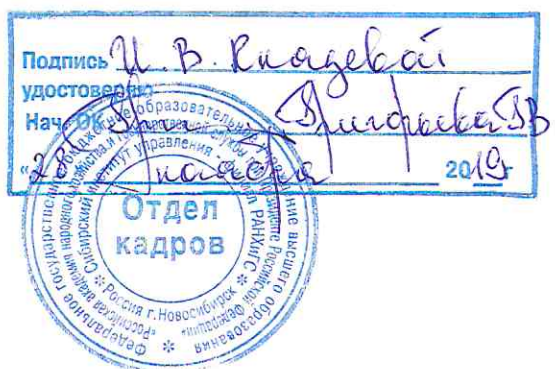 Подпись И. В. Князевой
удостоверяю
Нач. ОК Григорьева ТВ
«28» ноября 2019 г
Федеральное государственное бюджетное образовательное учреждение высшего образования
Российская академия народного хозяйства и государственной службы при Президенте Российской Федерации
Сибирский институт управления - филиал РАНХиГС
Россия г. Новосибирск
Отдел
кадров